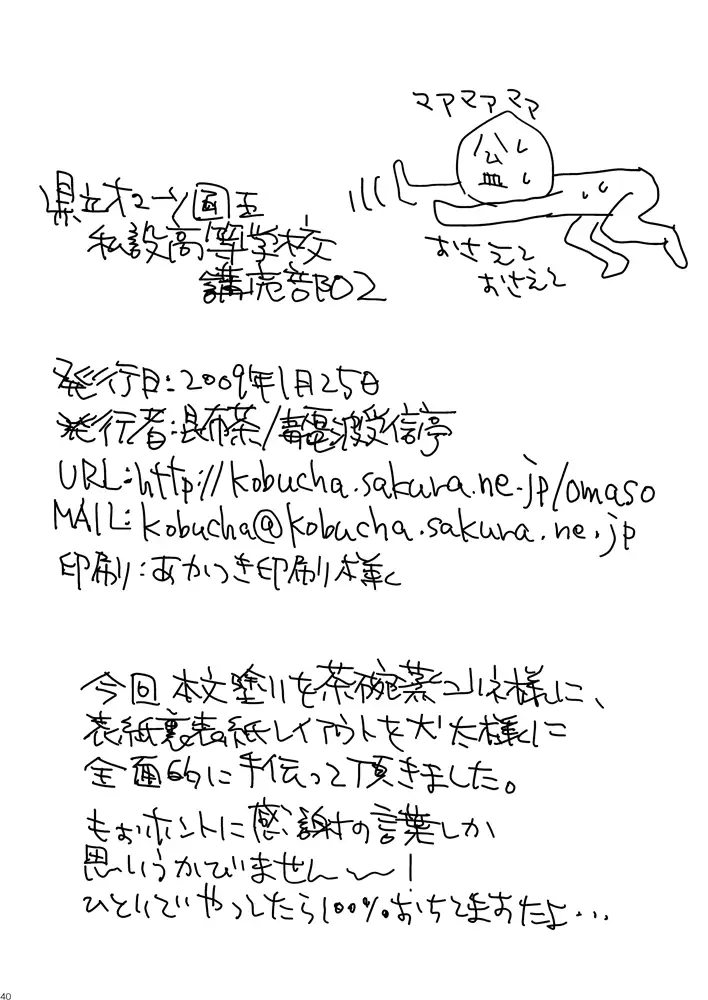 マアマアママ
公
皿
おさえて
おさえて
県立オマーン国王
私設高等学校
購売部02
発行日:2009年1月25日
発行者:昆布茶/毒電波受信亭
URL:http://kobucha.sakura.ne.jp/omaso
MAIL:kobucha@kobucha.sakura.ne.jp
印刷:あかつき印刷様
今回本文塗りを茶碗蒸コルネ様に、
表紙裏表紙レイアウトを犬太様に
全面的に手伝って頂きました。
もおホントに感謝の言葉しか
思いうかびません〜!
ひとりでやってたら100%おちてますたよ…
40